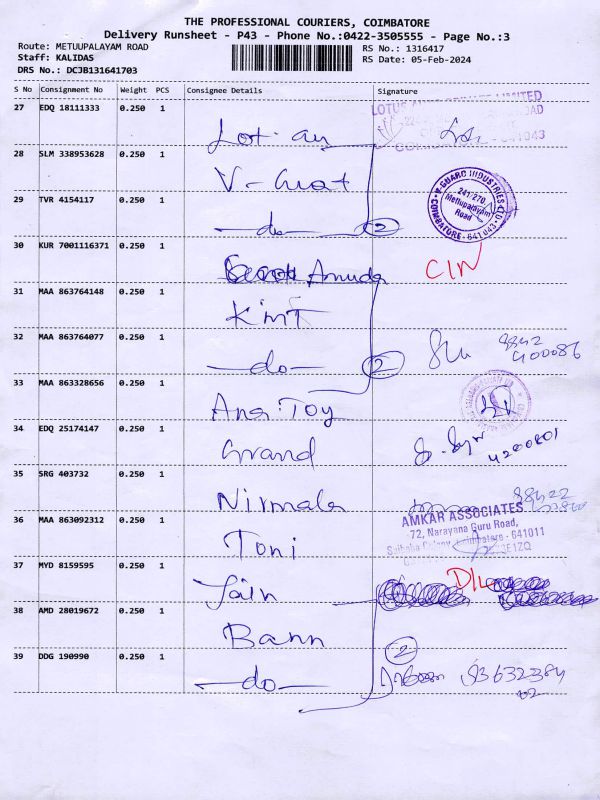 THE PROFESSIONAL COURIERS, COIMBATORE
Delivery Runsheet - P43 - Phone No.:0422-3505555 - Page No.:3
Route: METUUPALAYAM ROAD
RS No.: 1316417
Staff: KALIDAS
RS Date: 05-Feb-2024
DRS No.: DCJB131641703
S No Consignment No Weight PCS Consignee Details Signature
27 EDQ 18111333 0.250 1
28 SLM 338953628 0.250 1
V-Guat
29 TVR 4154117 0.250 1
-do- 2
V-GUARD INDUSTRIES
241/270, Mettupalayam Road
COIMBATORE - 641 043
30 KUR 7001116371 0.250 1
CIN
31 MAA 863764148 0.250 1
KMT
32 MAA 863764077 0.250 1
-do- 2
8842
400086
33 MAA 863328656 0.250 1
Toy
34 EDQ 25174147 0.250 1
Grand
4200801
35 SRG 403732 0.250 1
Nirmala
36 MAA 863092312 0.250 1
Toni
AMKAR ASSOCIATES
72, Narayana Guru Road,
Saibaba Colony, Coimbatore - 641011
37 MYD 8159595 0.250 1
Jain
38 AMD 28019672 0.250 1
Bann
39 DDG 190990 0.250 1
-do- 2